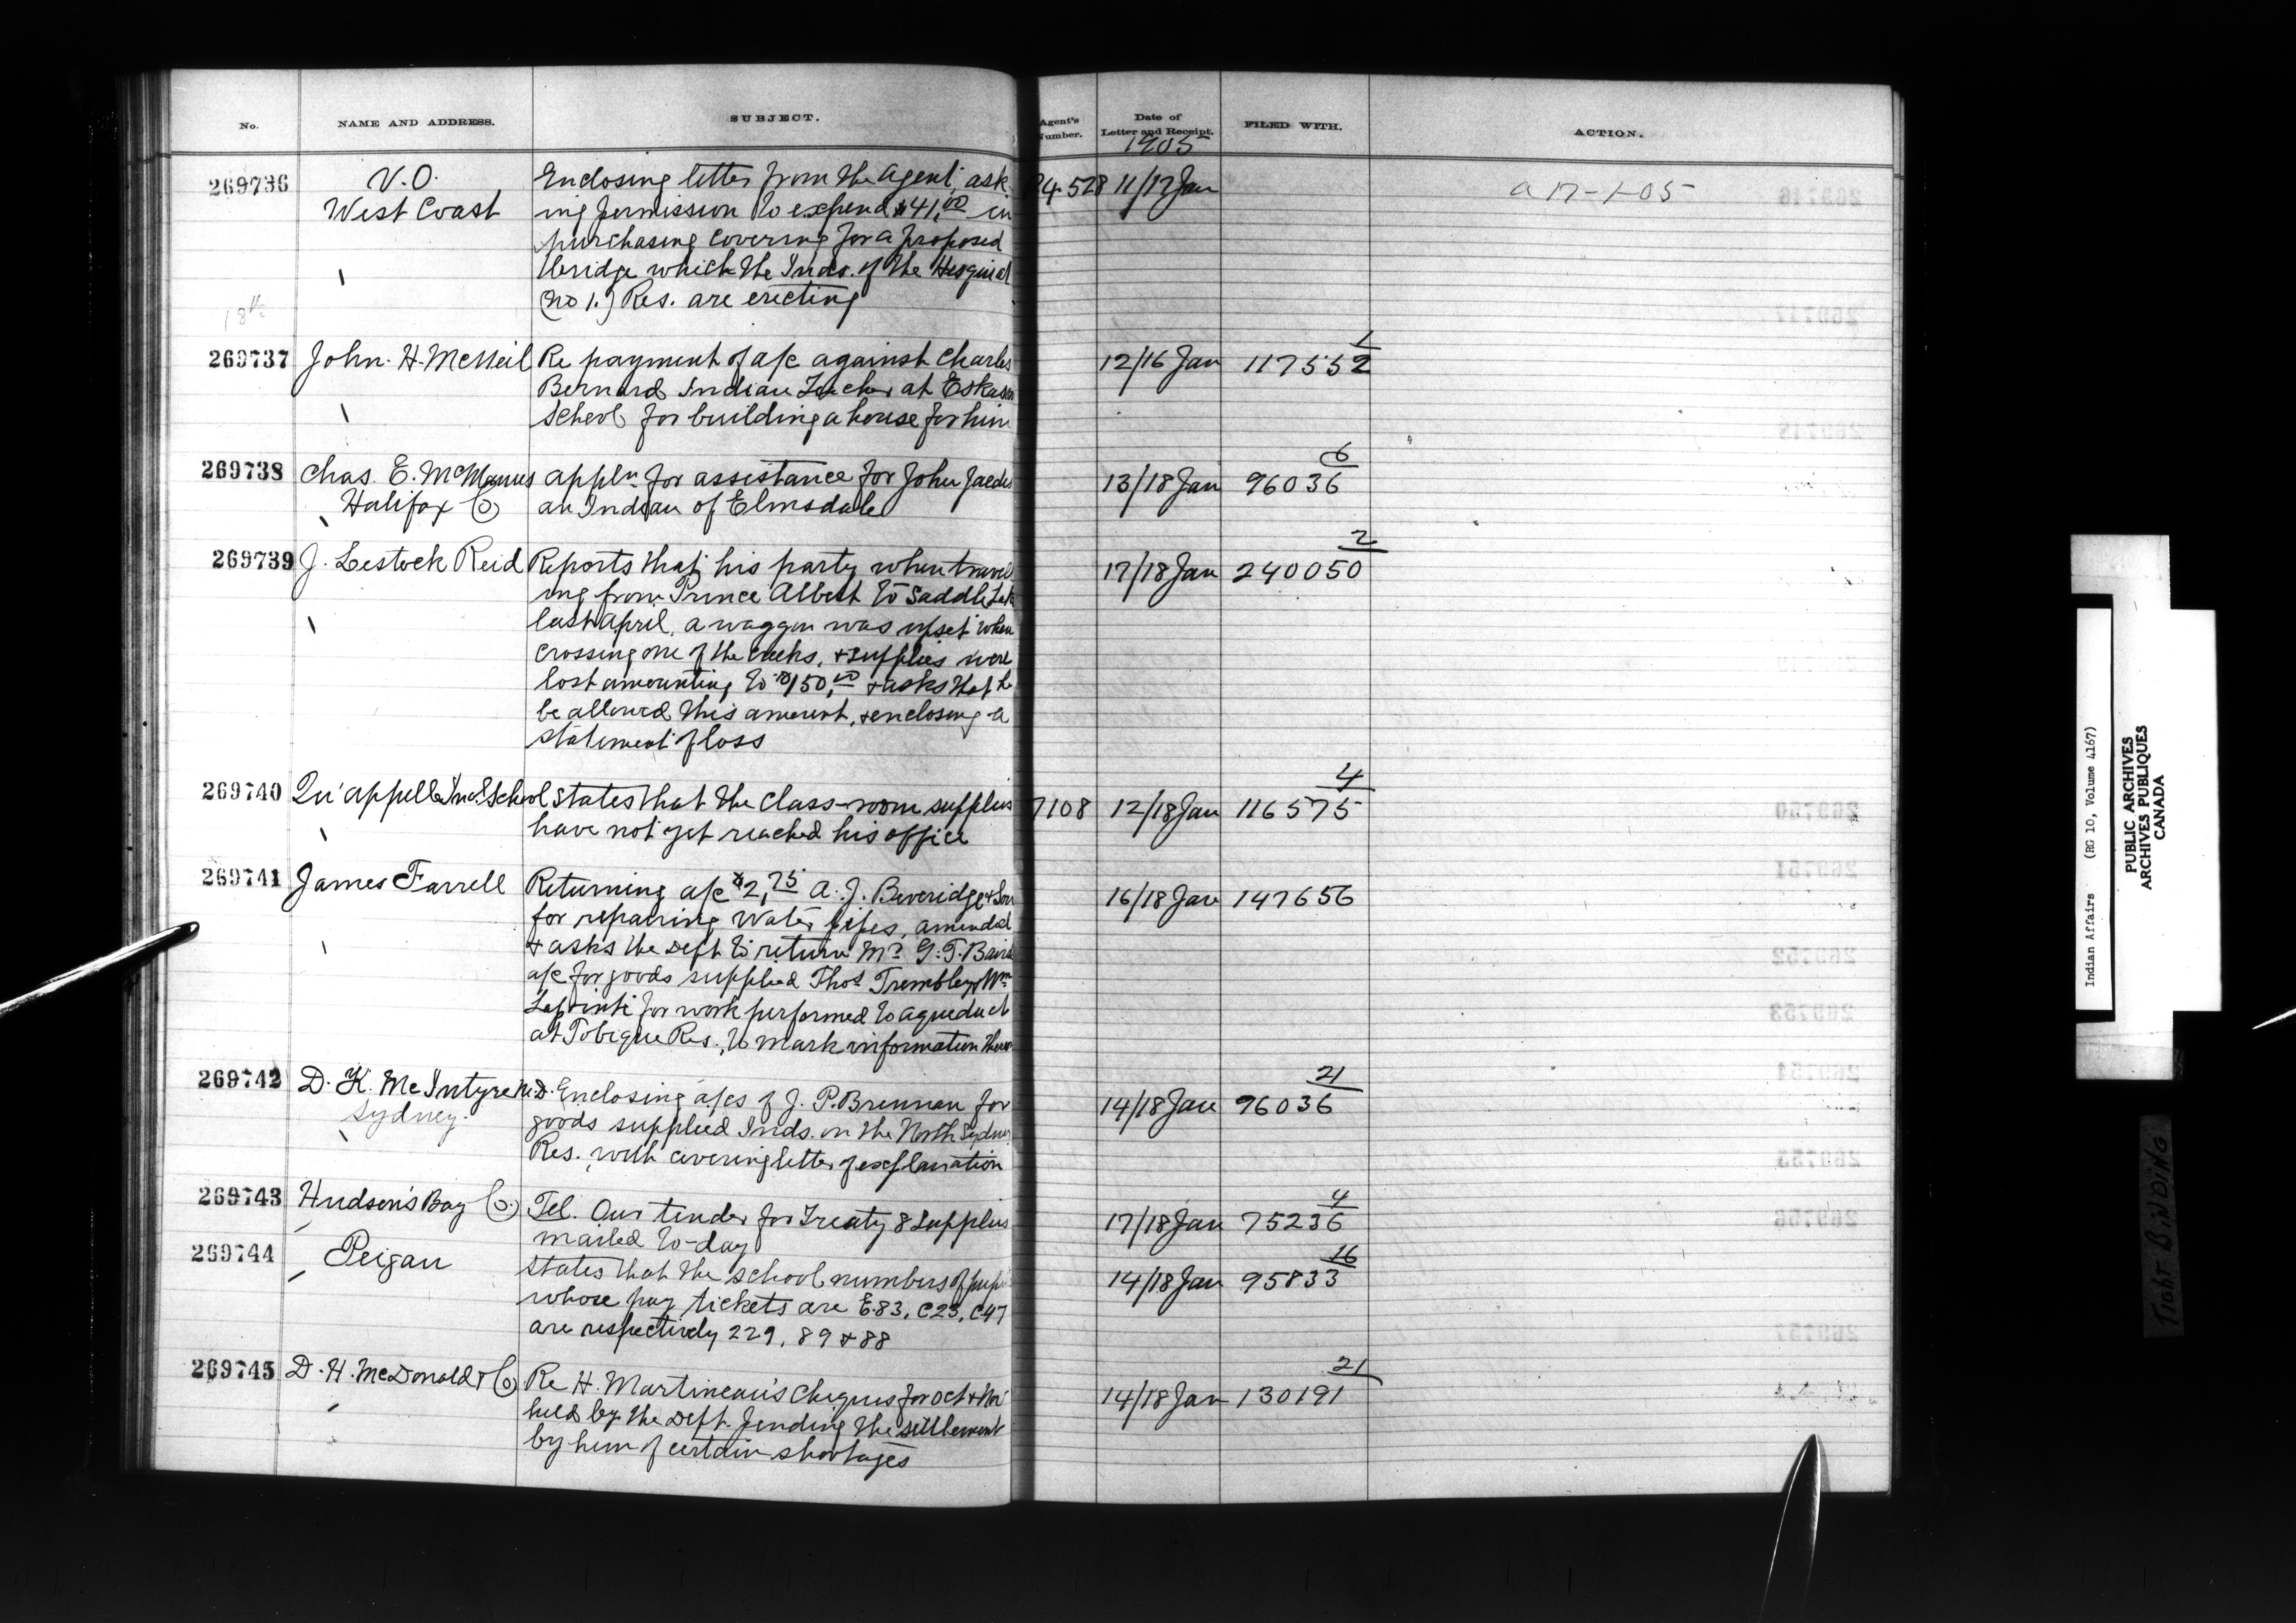 No.
NAME AND ADDRESS.
SUBJECT.
Agent's Number.
Date of Letter and Receipt.
FILED WITH.
ACTION.
1905
269736
V.O.
West Coast
Enclosing letter from the Agent, ask-
ing permission to expend $41.00 in
purchasing covering for a proposed
bridge which the Inds. of the Hesquiat
(No 1.) Res. are erecting
P4528
11/17 Jan
a 17-1-05
18th
269737
John. H. McNeil
Re payment of a/c against Charles
Bernard Indian Teacher at Eskason
School for building a house for him
12/16 Jan
1
117552
269738
Chas. E. McManus
Halifax Co
Appln. for assistance for John Jaedis
an Indian of Elmsdale
13/18 Jan
6
96036
269739
J. Lestock Reid
Reports that his party when travel
ing from Prince Albert to Saddle Lake
last April, a waggon was upset when
crossing one of the creeks, & supplies were
lost amounting to $150.00 & asks that he
be allowed this amount, & enclosing a
statement of loss
17/18 Jan
2
240050
269740
Qu'appelle Ind. School
States that the class-room supplies
have not yet reached his office
7108
12/18 Jan
4
116575
269741
James Farrell
Returning a/c $2.75 A. J. Beveridge & Son
for repairing water pipes, amended
& asks the Dept to return Mr. G. T. Baird
a/c for goods supplied Thos Trembley & Wm
for work performed to aqueduct
at Tobique Res., to mark information thereon
16/18 Jan
147656
269742
D. K. McIntyre M.D.
Sydney.
Enclosing a/cs of J. P. Brennan for
goods supplied Inds. on the North Sydney
Res. with covering letter of explanation
14/18 Jan
21
96036
269743
Hudson's Bay Co.
Tel. Our tender for Treaty 8 Supplies
mailed to-day
17/18 Jan
4
75236
269744
Peigan
States that the school numbers of pupils
whose pay tickets are E.83, C23, C47
are respectively 229, 89 & 88
14/18 Jan
16
95833
269745
D. H. McDonald & Co
Re H. Martineau's cheques for Oct & Nov
held by the Dept. pending the settlement
by him of certain shortages
14/18 Jan
21
130191
Indian Affairs (RG 10, Volume 4167)
PUBLIC ARCHIVES
ARCHIVES PUBLIQUES
CANADA
TIGHT BINDING